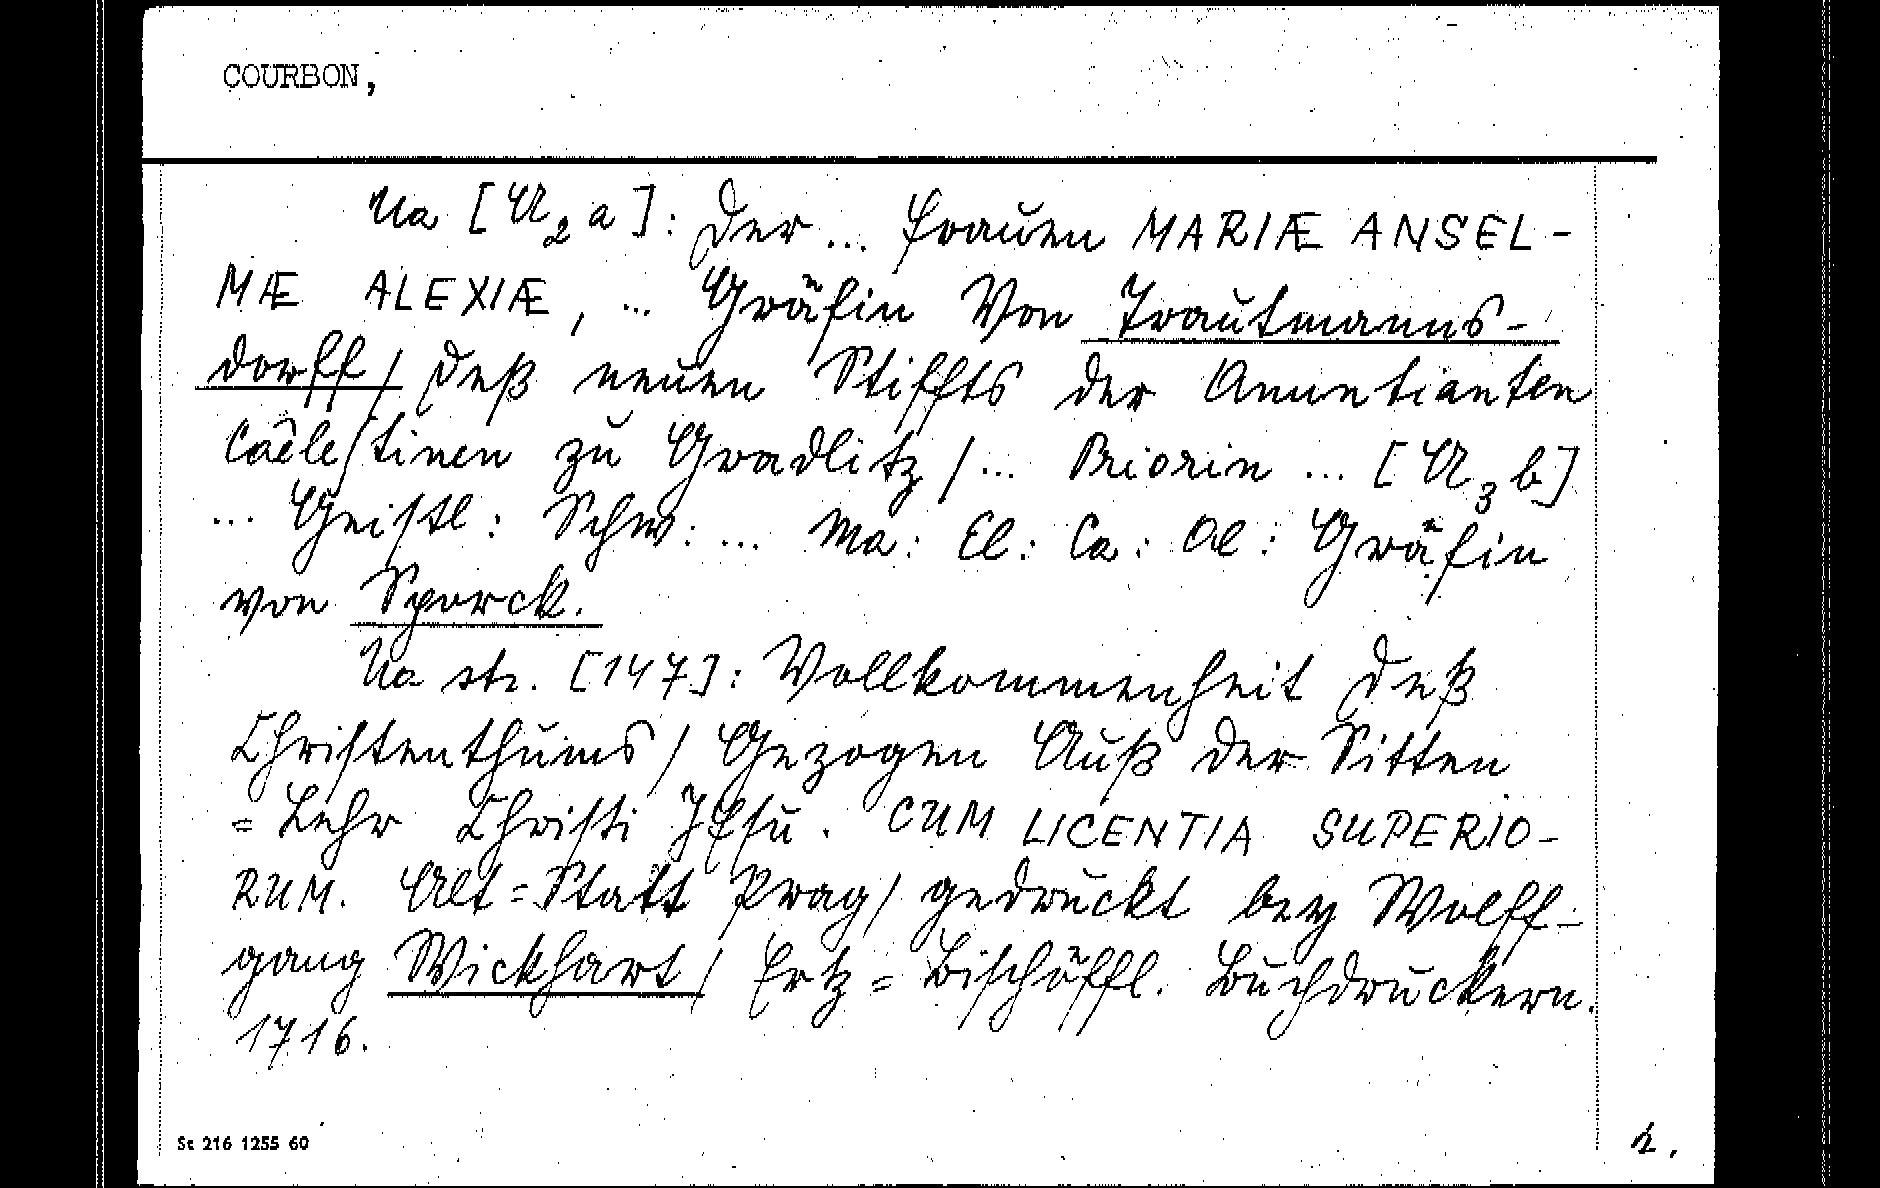 COURBON,
Na [A2a]: Der ... Frauen MARIÆ ANSEL-
MÆ ALEXIÆ, ... Gräfin Von Trautmanns-
dorff / Deß neuen Stiffts der Anuntianten
Caêlestinen zu Gradlitz / ... Priorin ... [A3b]
... Geistl: Schw: ... Ma: El: Ca: Al: Gräfin
von Sporck.
Na str. [147]: Vollkommenheit Deß
Christenthums / Gezogen Auß der Sitten
=Lehr Christi JEsu. CUM LICENTIA SUPERIO-
RUM. Alt=Statt Prag / gedruckt bey Wolff-
gang Wickhart / Ertz=Bischöffl. Buchdruckern.
1716.
St 216 1255 60
2.